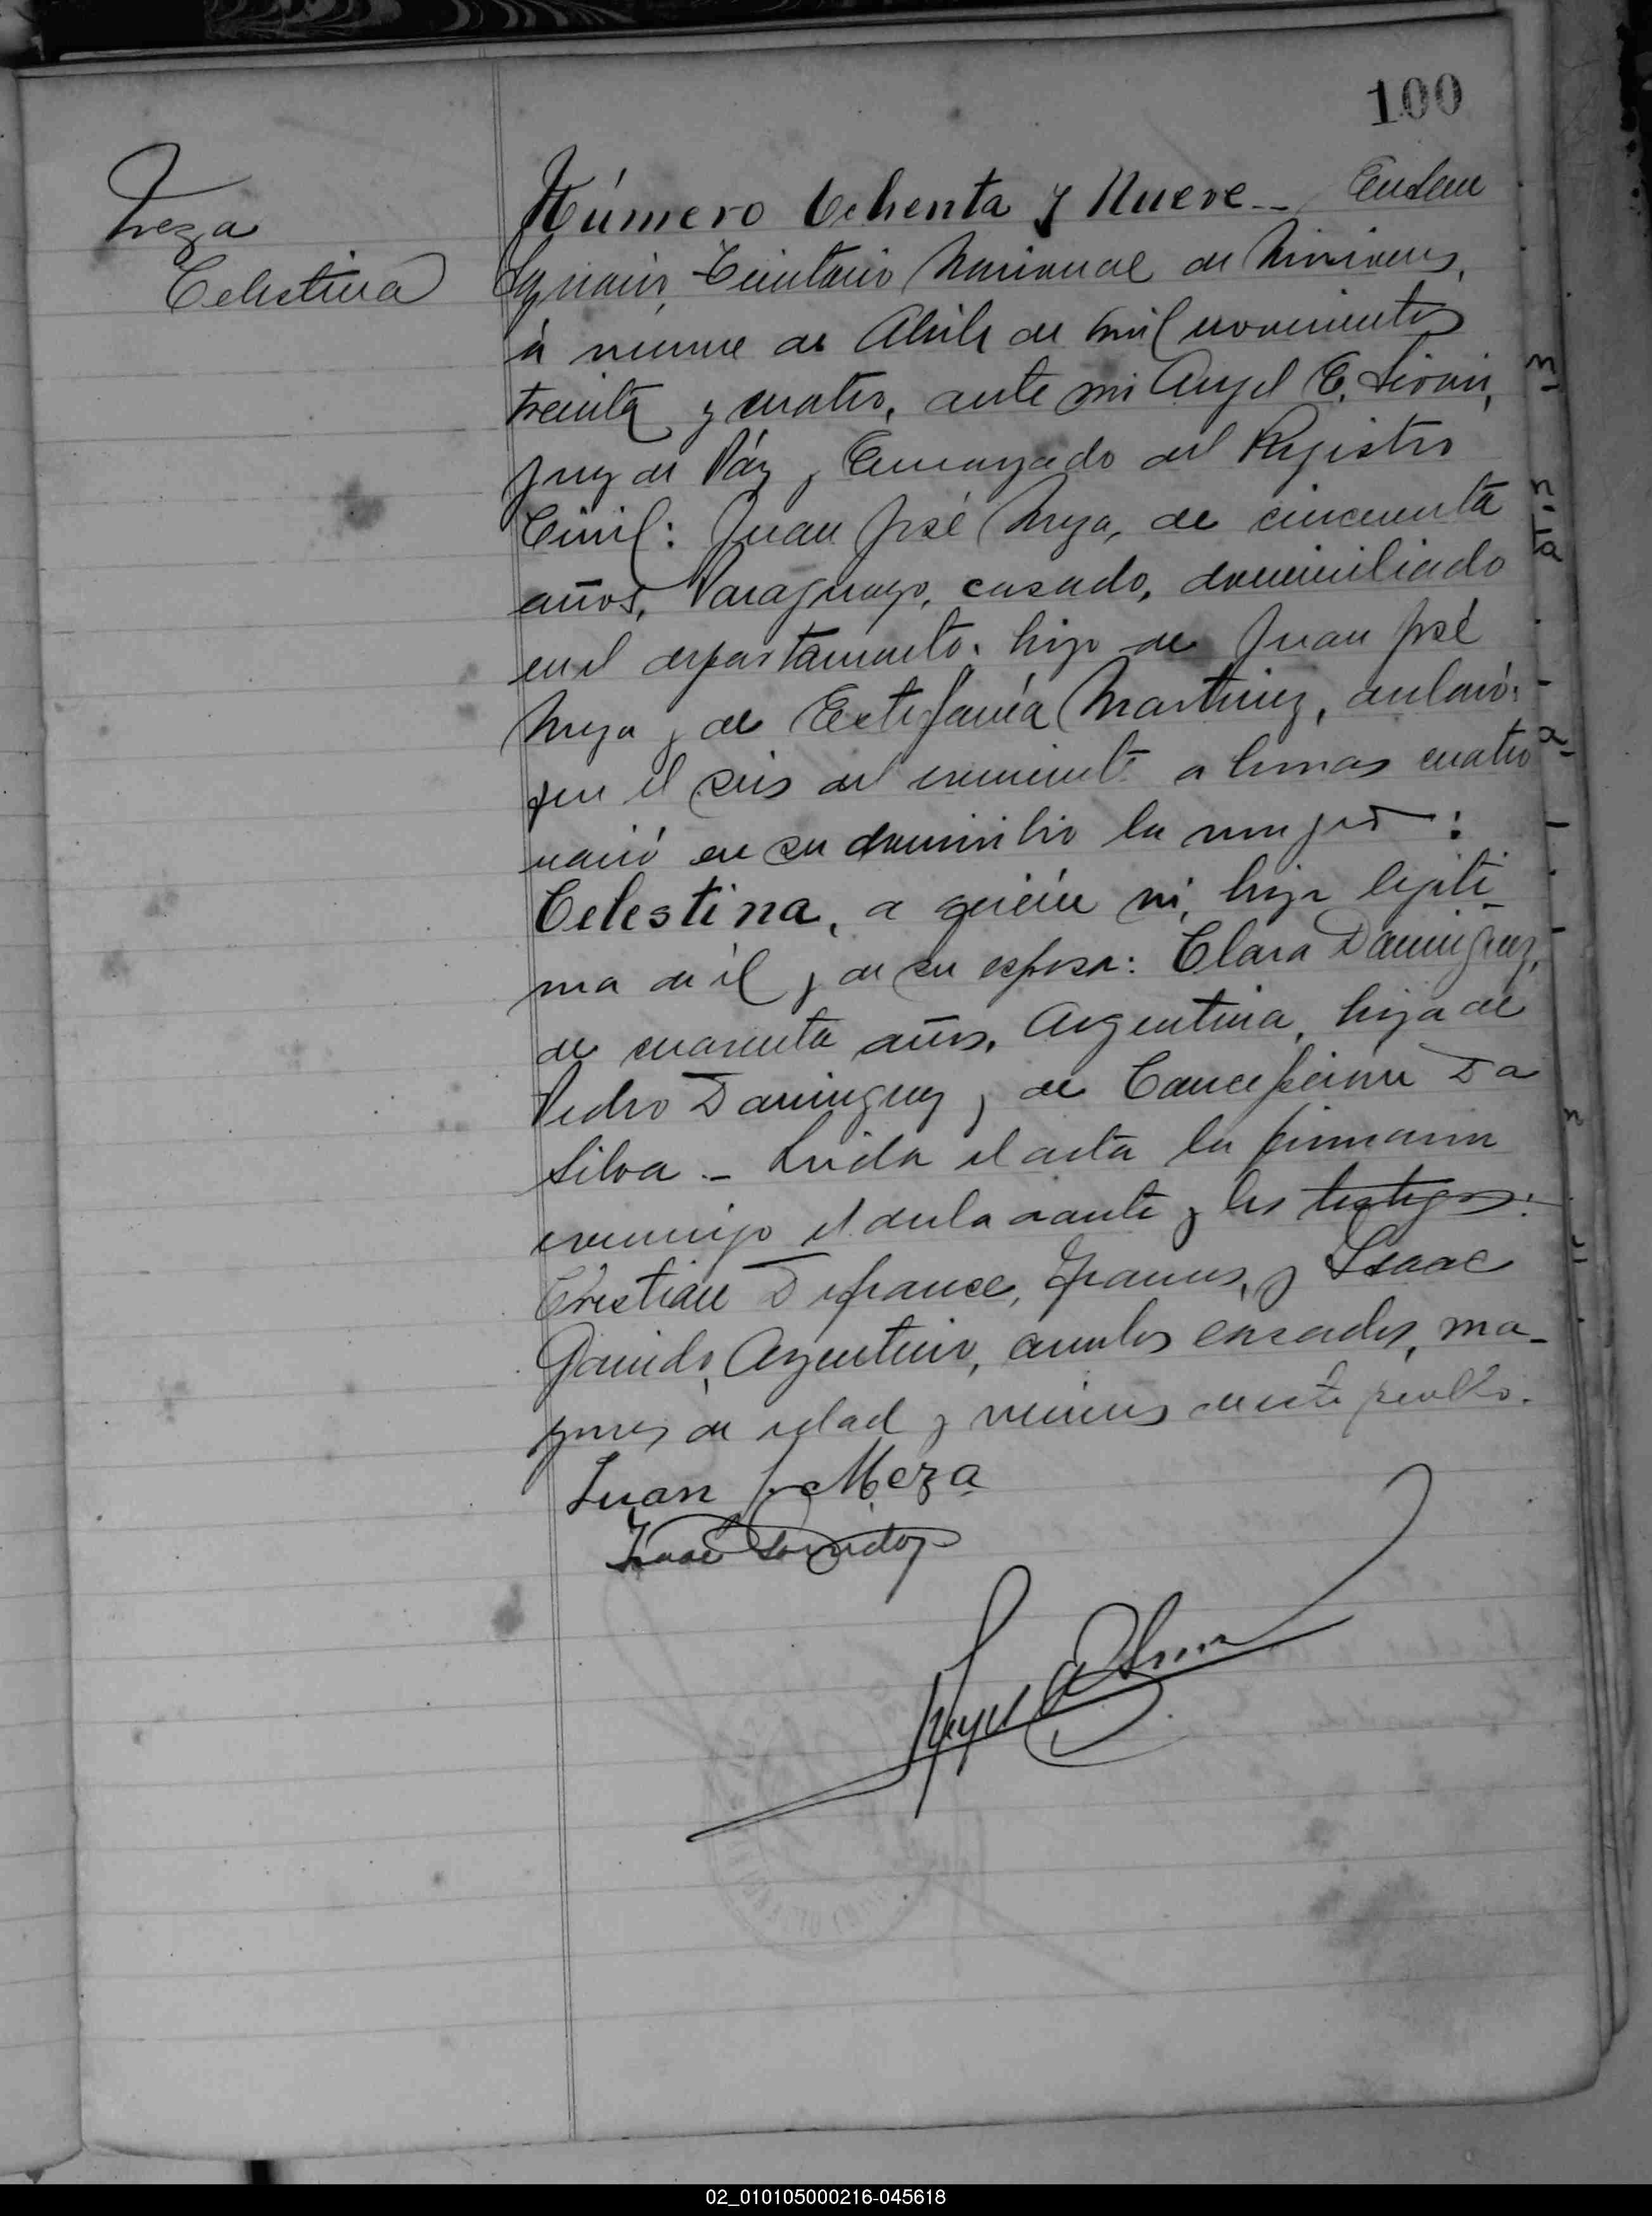 100
Meza
Celestina
Número Ochenta y Nueve._ En San
Ignacio, Territorio Nacional de Misiones,
á nueve de Abril de mil novecientos
treinta y cuatro, ante mi Angel E.
Juez de Páz y Encargado del Registro
Civil: Juan José Meza, de cincuenta
años, Paraguayo, casado, domiciliado
en el departamento, hijo de Juan José
Meza y de Estefanía Martinez, declaró:
que el seis del corriente a horas cuatro
nació en su domicilio la mujer:
Celestina, a quién vi, hija legíti_
ma de él y de su esposa: Clara Dominguez,
de cuarenta años, Argentina, hija de
Pedro Dominguez y de Concepcion Da
Silva._ Leída el acta la firmaron
conmigo el declarante y los testigos:
Cristian Defrance, Frances, y Isaac
Garrido, Argentino, ambos casados, ma_
yores de edad y vecinos de este pueblo.
Juan J. Meza
Isaac Garrido
Angel
02_010105000216-045618